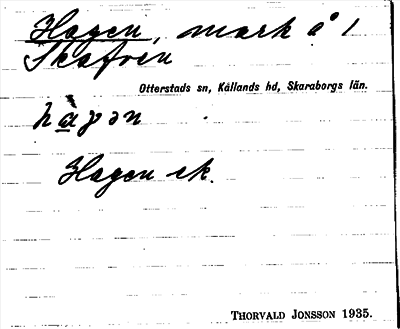 Hagen, mark å 1
Skafven
Otterstads sn, Kållands hd, Skaraborgs län.
hagən
Hagen ek.
THORVALD JONSSON 1935.